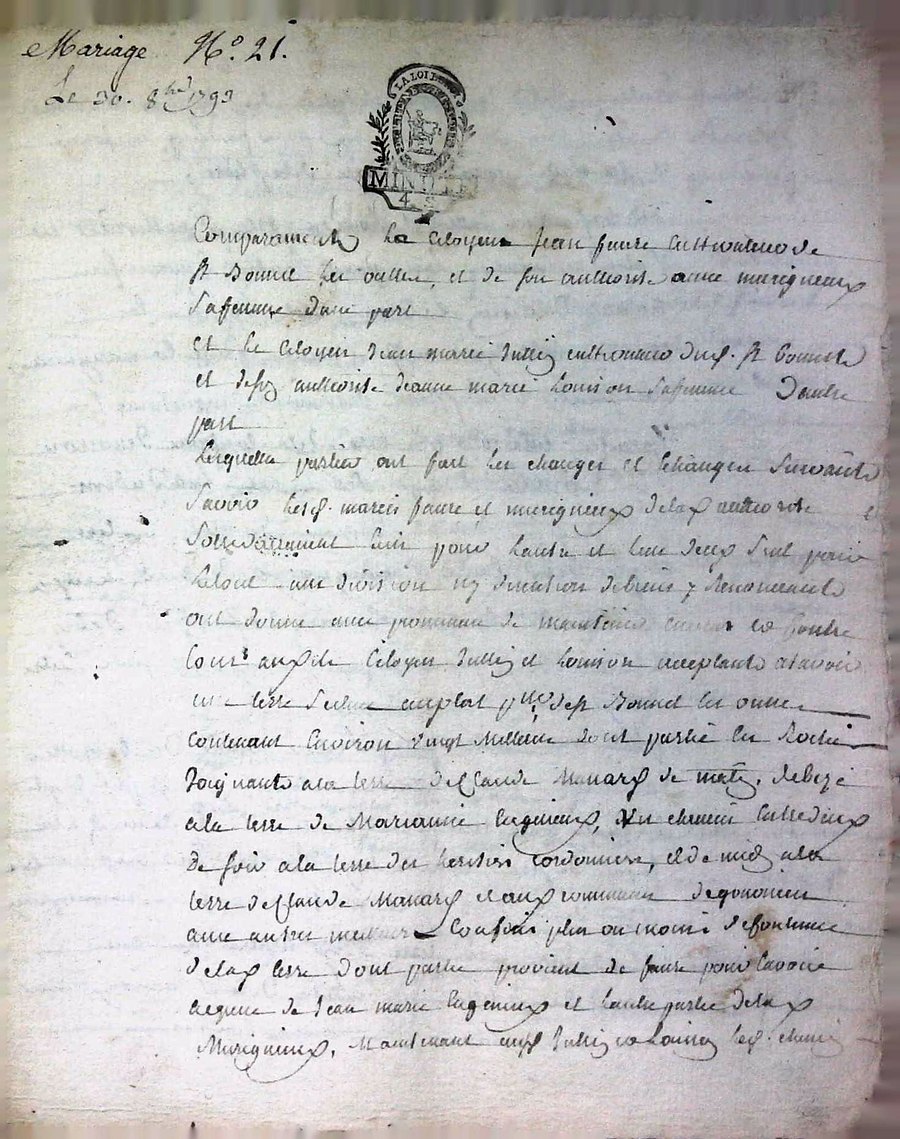 Mariage N.° 21.
Le 30. 8bre 1793
LA LOI
MINUTE
4
Comparaments le Citoyen Jean faure Cultivateur de
St Bonnet les oulles, et de son authorité anne murigneux
Sa femme d'une part
et le Citoyen Jean marie Cultivateur dud. St Bonnet
et de son authorité Jeanne marie Louison Sa femme D'autre
part
Lesquelles parties ont fait les changes et Echanges Suivants
Savoir lesd. mariés faure et murigneux de lad authorité
Solidairement l'un pour l'autre et l'un deux Seul pour
le tout sans division ny de biens y Renonceants
ont donné avec promesse de maintenir envers et contre
tous auxd. Citoyen et Louison acceptants a Savoir
une terre Située dest Bonnet les oulles
contenant Environ vingt dont partie en Rocher
Joignants a la terre de Claude de matin, de bize
a la terre de Marianne Eugenieux, un chemin Entredeux
de soir a la terre des heritiers cordonnier, et de midy a la
terre de Claude et aux communes
avec autres meilleurs Confins plus ou moins de Contenue
de lad terre dont partie provient de faure pour l'avoir
acquise de Jean marie Eugenieux et l'autre partie de lad
Murigneux, Maintenant auxd et Louison led. chemin